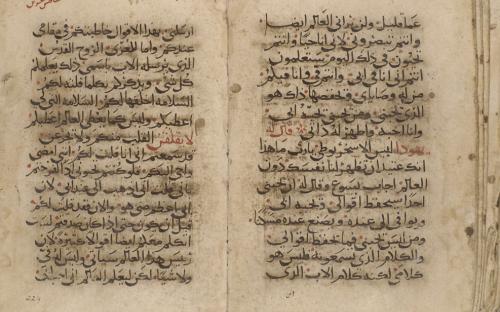 عما قليل ولن يراني العالم ايضا
وانتم تبصروني لاني انا حيا وانتم
تحيون في ذلك اليوم ستعلمون
انني انا في ابي وانتم في وانا فيكم
من له وصاياي وحفظها ذاك هو
الذي يحبني ومن يحبني يحبه ابي
وانا احبه واظهر له ذاتي قال له
يهودا ليس الاسخريوطي يارب ماهذا
انك عتيد ان تظهر لنا نفسك دون
العالم اجاب يسوع وقال له ان يحبني
احدا سيحفظ اقوالي وتحبه ابي
ويوافي الى عنده ويصنع عنده مسكنا
ومن ليس يحبني فما يحفظ اقوالي
والكلام الذي تسمعونه فليس هو
كلامي لكنه كلام الاب الذي
ارسلني بهذا الاقوال خاطبتكم في مقامي
عندكم واما المعزي الروح القدس
الذي يرسله الاب باسمي ذاك يعلمكم
كل شي ويذكركم بكلما قلته لكم
السلامه اخلفها لكم السلامه التي لي
اعطيكم وليس كما يعطي العالم اعطيكم
لا تقلقن القلب منكم ولا تجزعن
قد سمعتم اني انا قلت لكم انني امضي
واتي اليكم فلو كنتم تحبوني لقد افرحتم
باني قلت انني اذهب الى عند ابي لان
ابي اعظم مني هو والان قد قلت لكم
قبل ان يكون حتى اذا كان صدقتم لست
اتكلم معكم ايضا اقوالا كثيره لان
رييس هذا العالم سياتي وليس له في
ولا شيئا لكن ليعلم العالم اني احب ابي